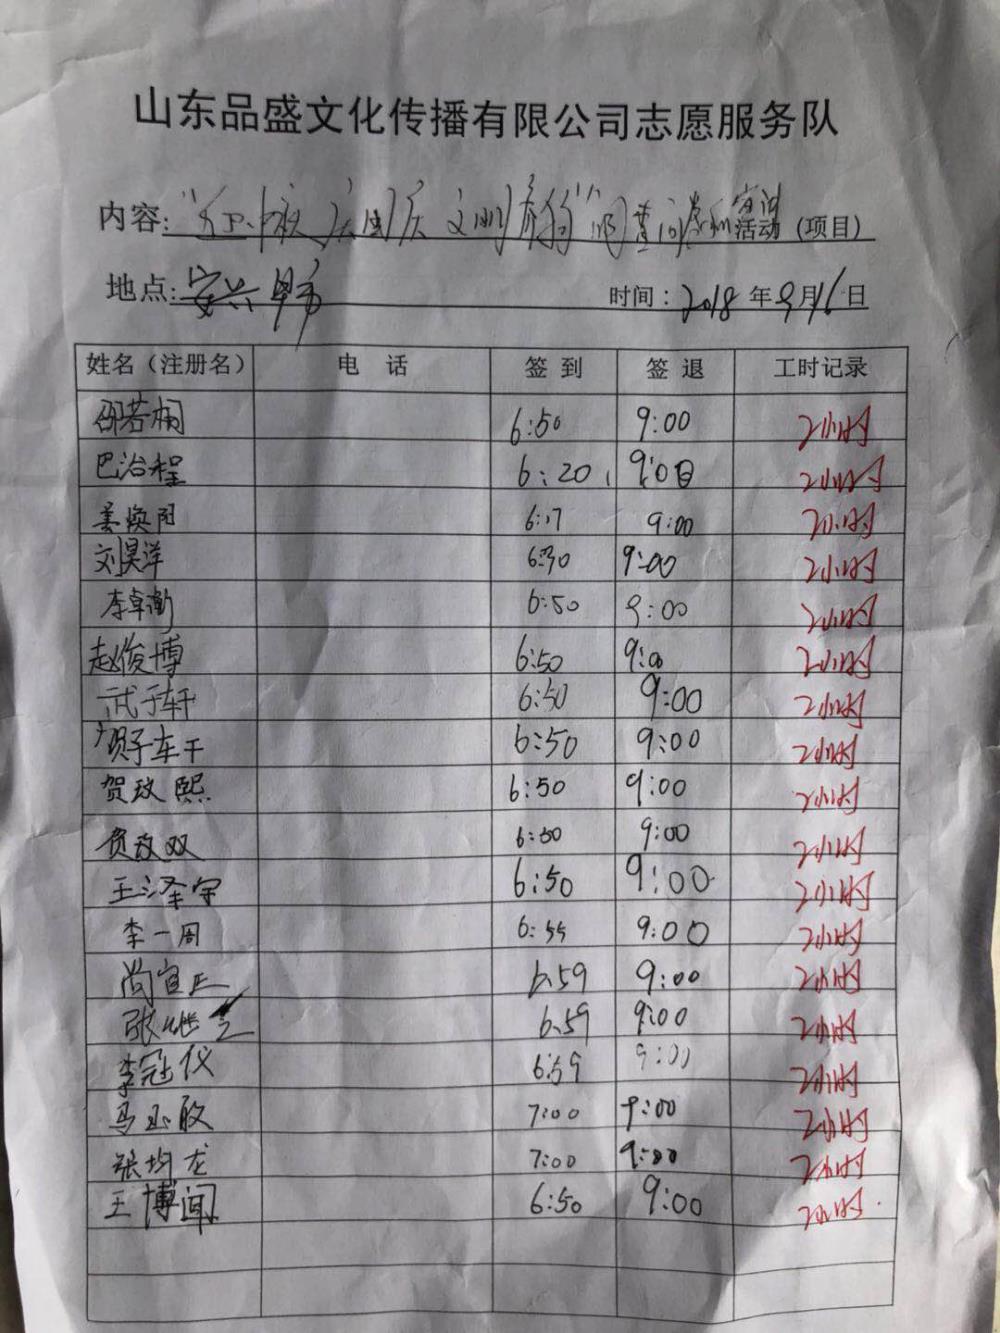 山东品盛文化传播有限公司志愿服务队
内容: 庆国庆 文明 活动 (项目)
地点: 安兴早市 时间: 2018 年 9 月 16 日
姓名（注册名） 电 话 签 到 签 退 工时记录
邵若桐 6:50 9:00 2小时
巴治程 6:20 9:00 2小时
姜焕阳 6:17 9:00 2小时
刘昊洋 6:30 9:00 2小时
李卓衡 6:50 9:00 2小时
赵俊博 6:50 9:00 2小时
武子轩 6:50 9:00 2小时
贾子车干 6:50 9:00 2小时
贺玟熙 6:50 9:00 2小时
贺玟双 6:50 9:00 2小时
王泽宇 6:50 9:00 2小时
李一周 6:55 9:00 2小时
尚宣正 6:59 9:00 2小时
张继 6:59 9:00 2小时
李冠仪 6:59 9:00 2小时
马丕敢 7:00 9:00 2小时
张均龙 7:00 9:00 2小时
王博闻 6:50 9:00 2小时